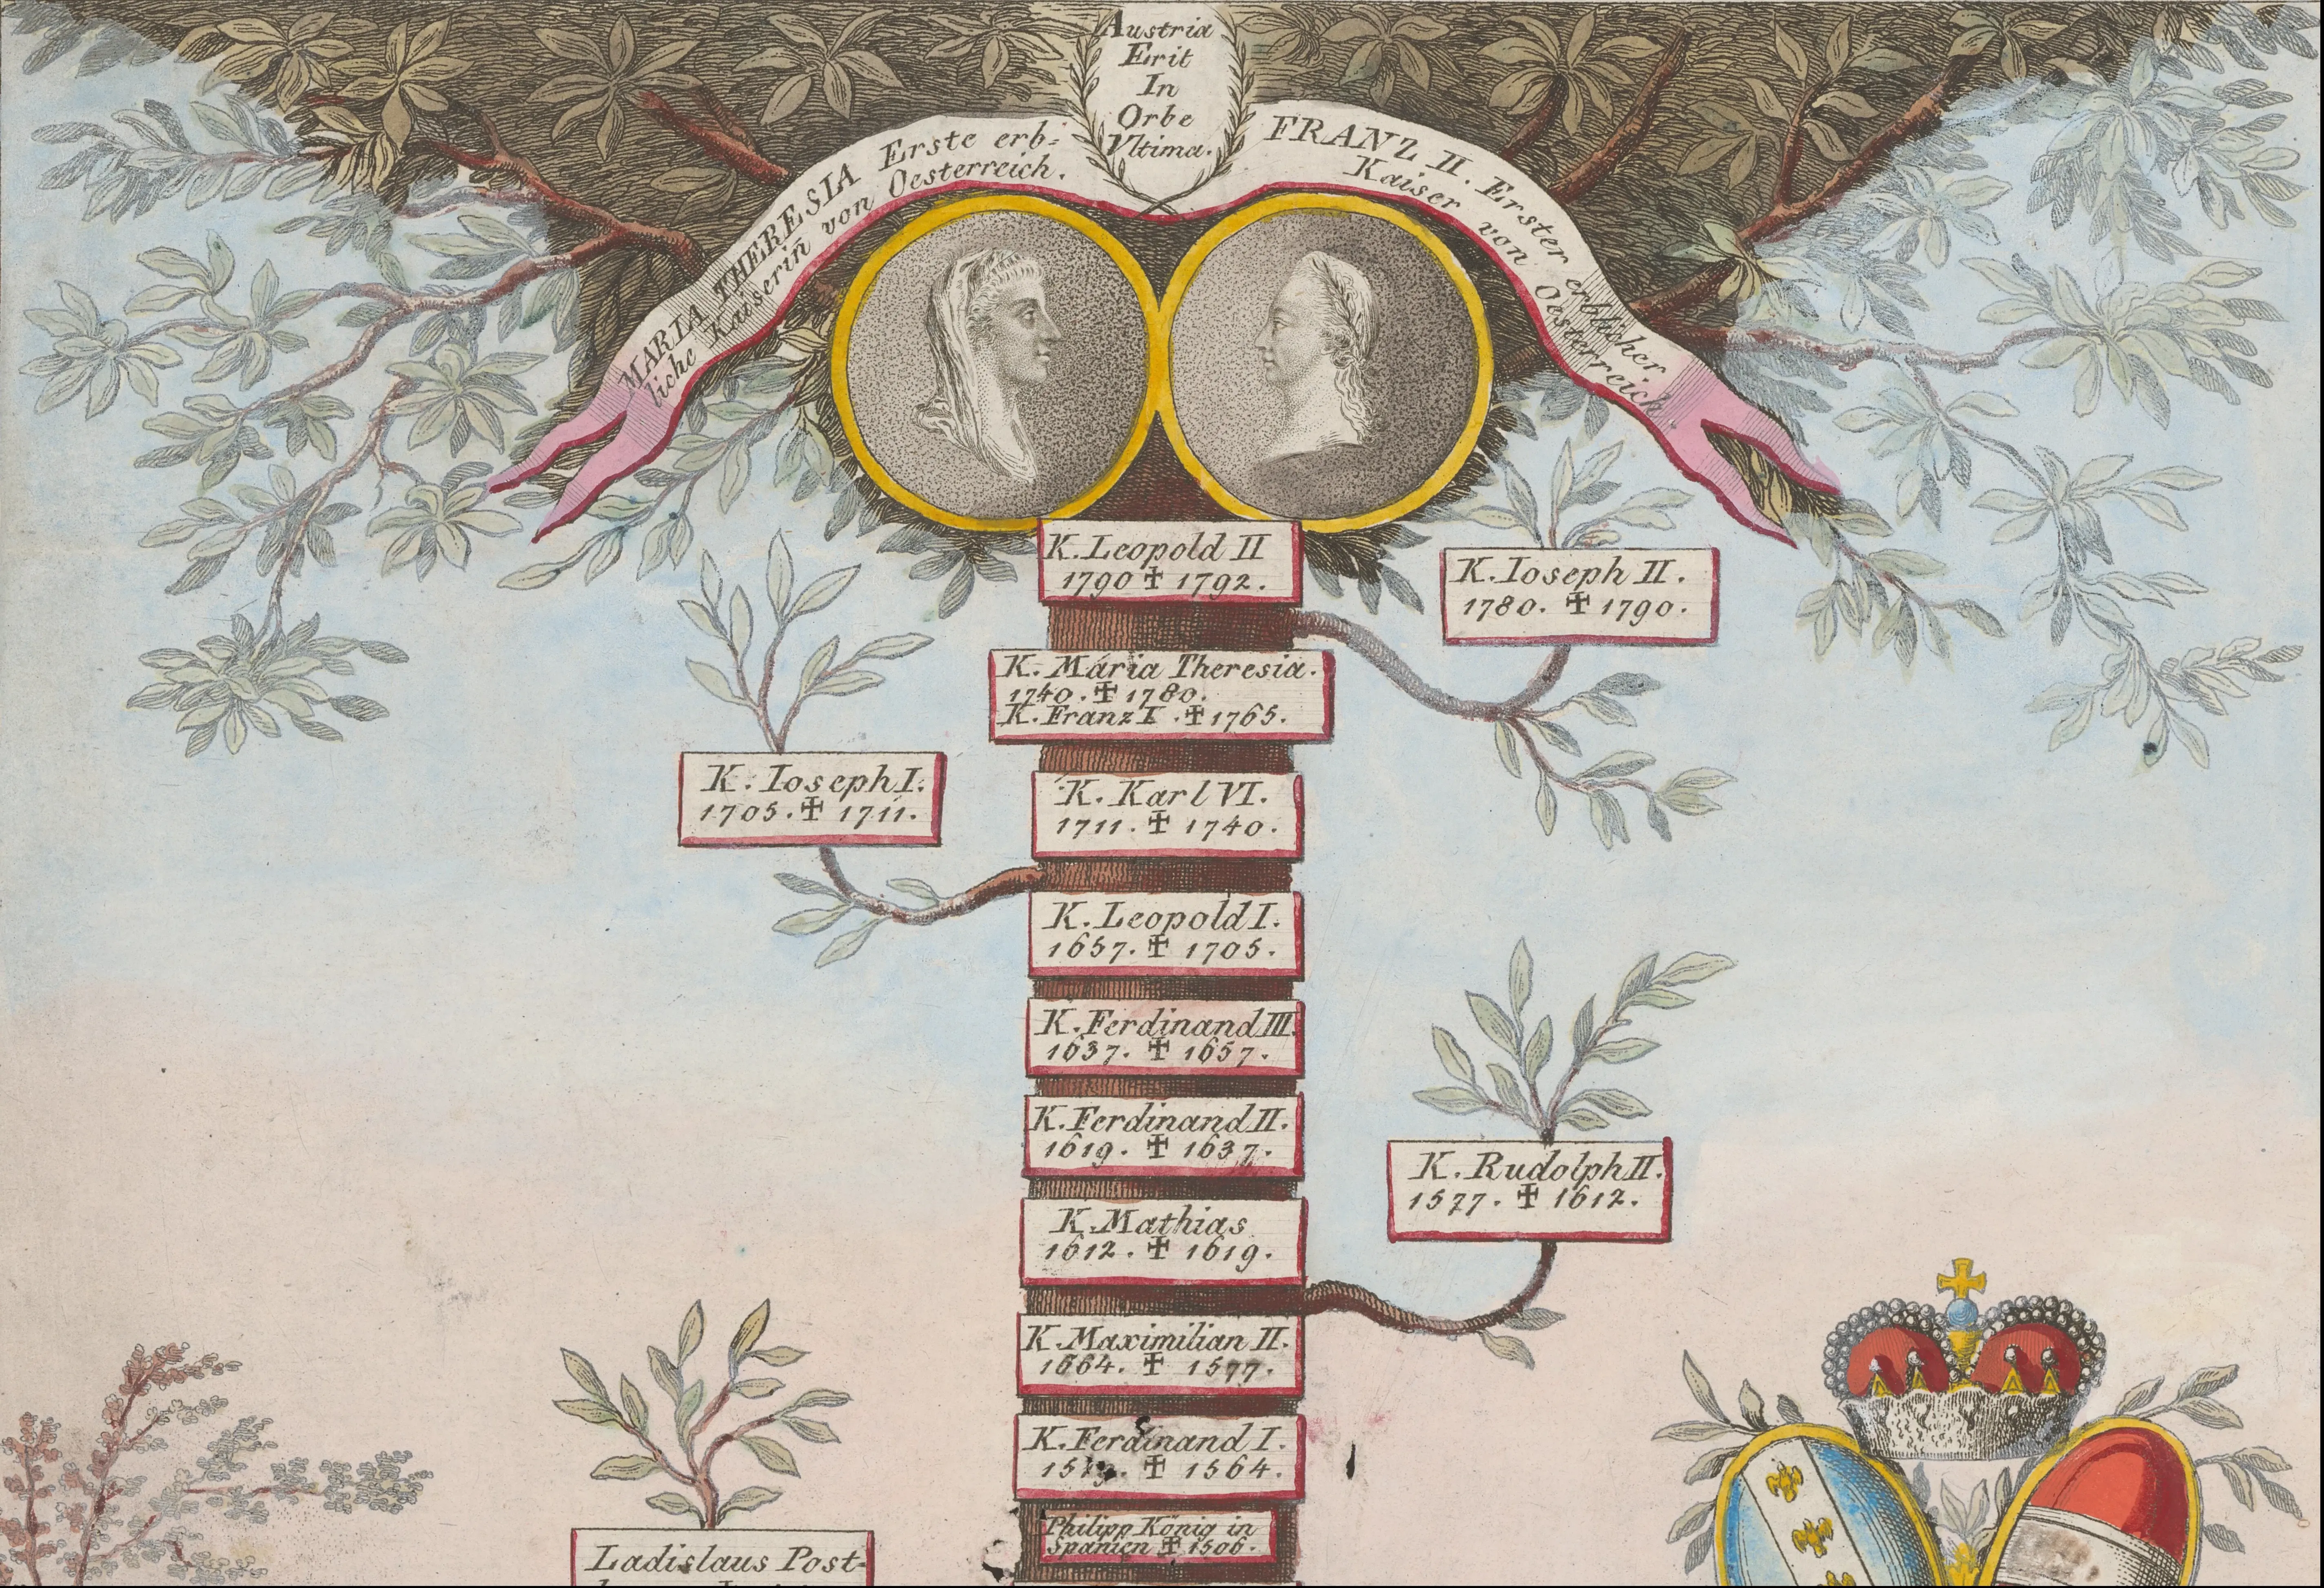 Austria
Erit
In
Orbe
Vltima.
MARIA THERESIA Erste erb-
liche Kaiserin von Oesterreich.
FRANZ II. Erster erblicher
Kaiser von Oesterreich
K. Leopold II
1790 ✠ 1792.
K. Ioseph II.
1780. ✠ 1790.
K. Maria Theresia.
1740. ✠ 1780.
K. Franz I. ✠ 1765.
K. Ioseph I.
1705. ✠ 1711.
K. Karl VI.
1711. ✠ 1740.
K. Leopold I.
1657. ✠ 1705.
K. Ferdinand III.
1637. ✠ 1657.
K. Ferdinand II.
1619. ✠ 1637.
K. Rudolph II.
1577. ✠ 1612.
K. Mathias
1612. ✠ 1619.
K. Maximilian II.
1664. ✠ 1577.
K. Ferdinand I.
✠ 1564.
Philipp König in
Spanien ✠ 1506.
Ladislaus Post-